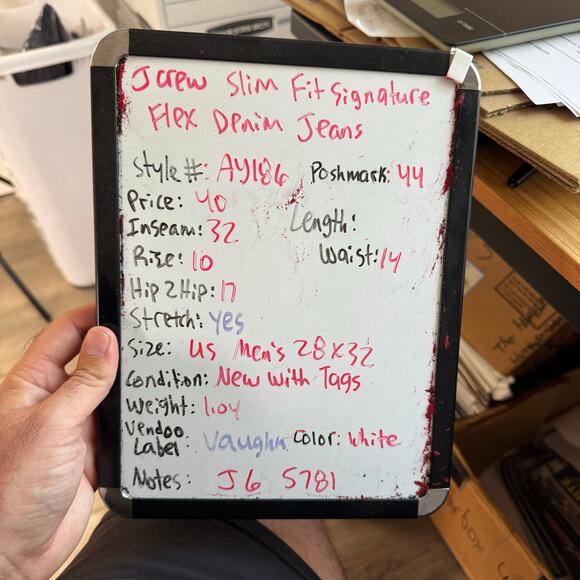 J crew Slim Fit Signature
Flex Denim Jeans
Style #: AY186 Poshmark: 44
Price: 40
Inseam: 32 Length:
Rise: 10 Waist: 14
Hip 2 Hip: 17
Stretch: yes
Size: US Men's 28x32
Condition: New With Tags
Weight: 1.04
Vendoo
Label: Vaughn Color: White
Notes: J6 5781